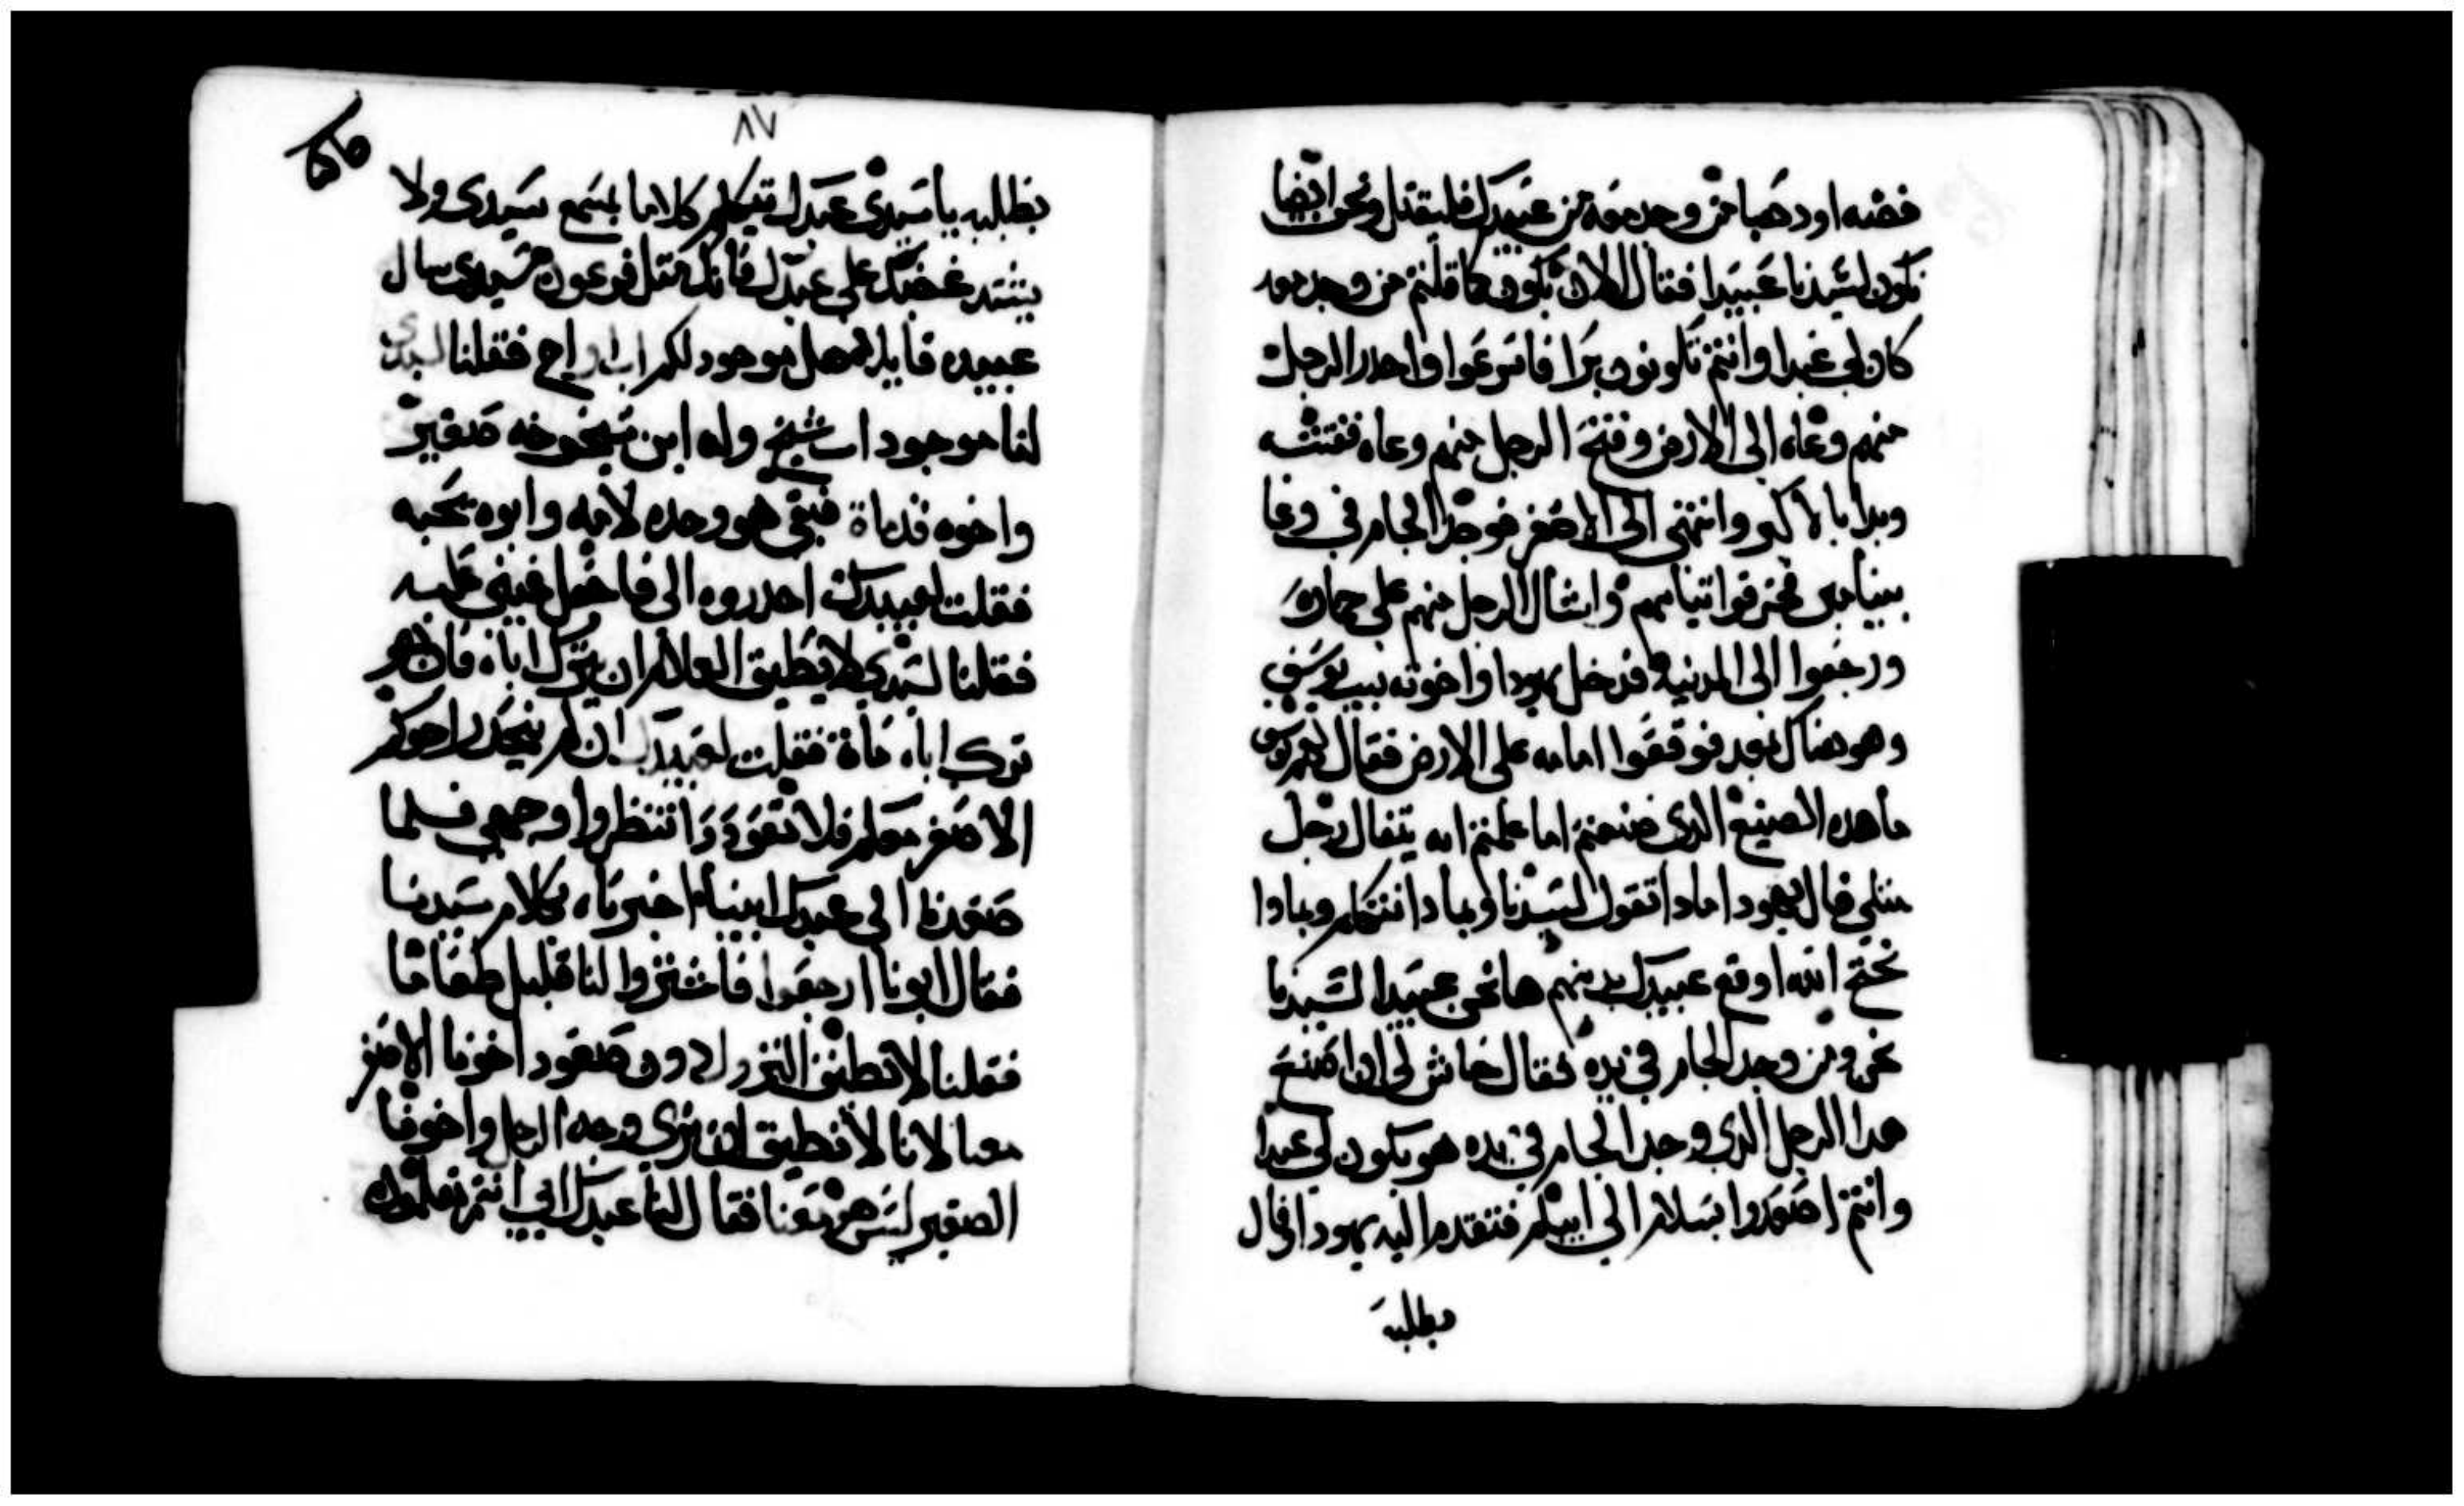 فضه او دهبا من وجد معه من عبيدك فليقتل ونحن ايضا
نكون لسيدنا عبيدا فقال الان يكون كما قلتم من وجد معه
كان لي عبدا وانتم تكونون برا فاسرعوا واحدر الرجل
منهم وعاه الى الارض وفتح الرجل منهم وعاه ففتشه
وبدا بالاكبر وانتهى الى الاصغر فوجد الجام في وعا
بنيامين فخرقوا تيابهم واشال الرجل منهم على حماره
ورجعوا الى المدنيه فدخل يهودا واخوته بيت يوسف
وهو هناك بعد فوقعوا امامه على الارض فقال لهم يوسف
ما هده الصنيع الدى صنعتم اما علمتم انه يتفال رجل
متلي قال يهودا مادا تقول لسيدنا وبمادا نتكلم وبمادا
نحتج الله اوقع عبيدك بدنبهم ها نحن عبيدا لسيدنا
نحن ومن وجد الجام في يده فقال حاش لي ان اصنع
هدا الرجل الدي وجد الجام في يده هو يكون لي عبدا
وانتم اصعدوا بسلام الي ابيكم فتقدم اليه يهودا وقال
بطلبه
٨٧
بطلبه يا سيدي عبدك يتكلم كلاما يسمع سيدى ولا
يشتد غضبك على عبدك فانك متل فرعون سيدى سال
عبيده قايلا هل موجود لكم اب او اخ فقلنا لسيدى
لنا موجود اب شيخ وله ابن شيخوخه صغير
واخوه قد ماة فبقى هو وحده لامه وابوه يحبه
فقلت لعبيدك احدروه الى فاجعل عيني عليه
فقلنا لسيدي لا يطيق الغلام ان يترك اباه فان هو
ترك اباه ماة فقلت لعبيدك ان لم ينحدر اخوكم
الاصغر معكم فلا تعودوا تنتظروا وجهى فلما
صعدنا الى عبدك ابينا اخبرناه بكلام سيدنا
فقال ابونا ارجعوا فاشتروا لنا قليل طعاما
فقلنا لا نطيق النزول دون صعود اخونا الاصغر
معنا لانا لا نطيق ان نرى وجه الرجل واخونا
الصغير ليس هو معنا فقال لنا عبدك ابي انتم تعلمون